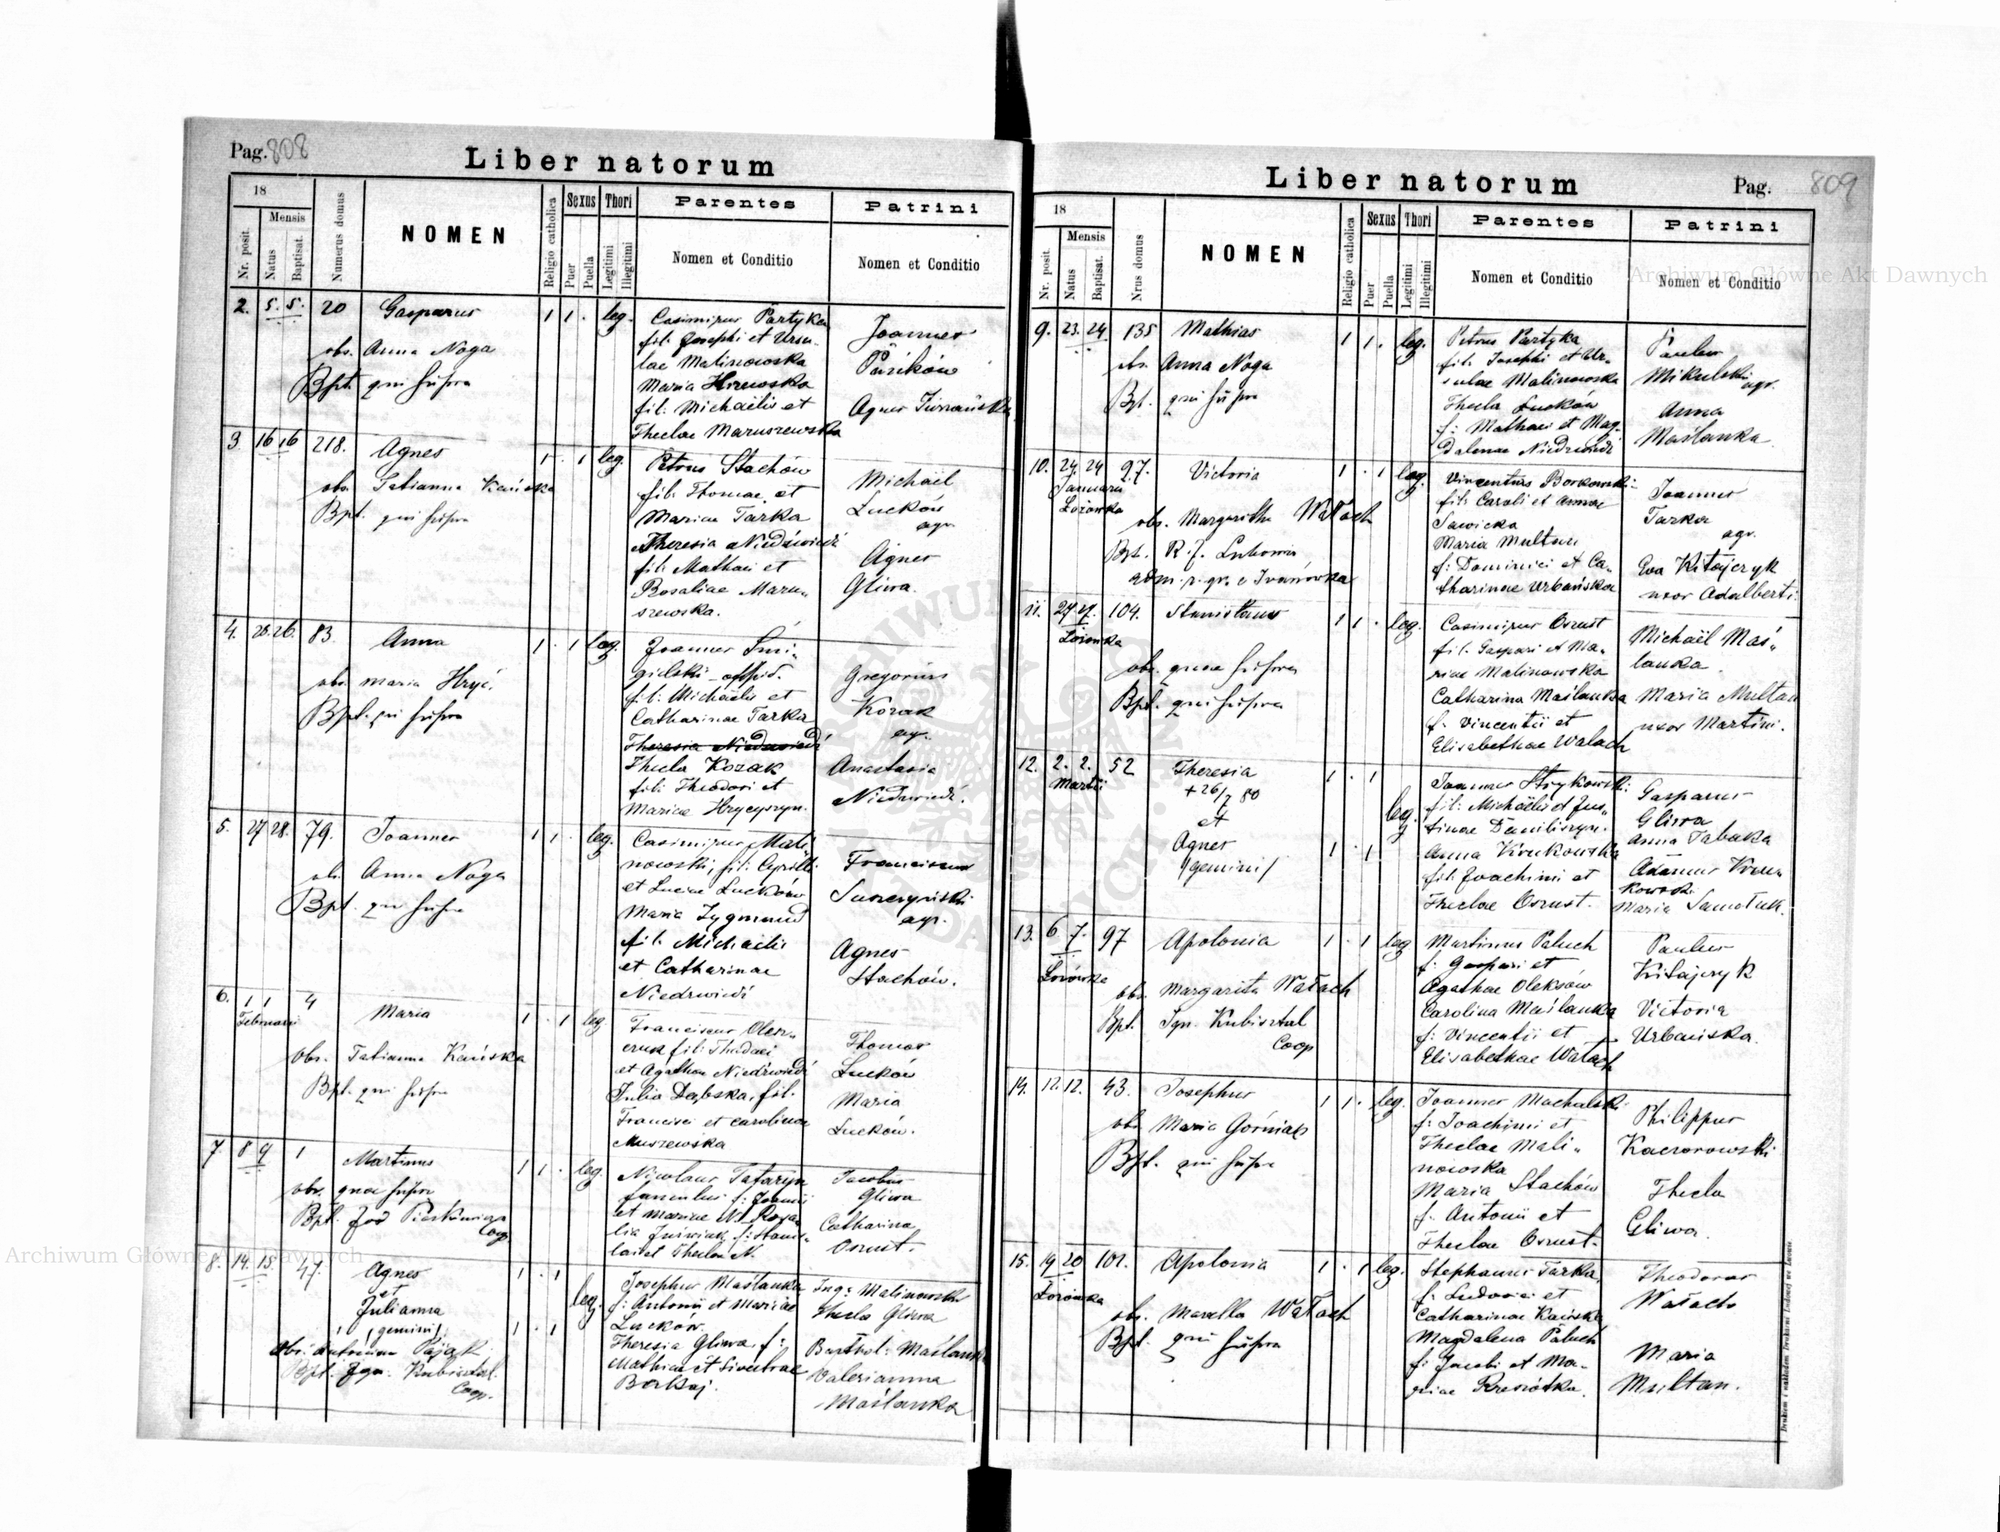 Pag. 808
Liber natorum
18
Mensis
Nr. posit.
Natus
Baptisat.
Numerus domus
NOMEN
Religio catholica
Sexus
Puer
Puella
Thori
Legitimi
Illegitimi
Parentes
Nomen et Conditio
Patrini
Nomen et Conditio
2. 5. 5. 20 Gasparus 1 1 . leg.
obs. Anna Noga
Bpt. qui supra
Casimirus Partyka
fil: Josephi et Ursu-
lae Malinowska
Maria
fil: Michaëlis et
Theclae Maruszewska
Joannes
Agnes
3 16 16 218. Agnes 1 . 1 leg.
obs. Tatianna
Bpt. qui supra
Petrus Stachów
fil: Thomae et
Mariae Tarka
Theresia Niedźwiedź
fil: Mathaei et
Rosaliae Maru-
szewska.
Michaël
Luckóv
agr.
Agnes
Gliwa.
4. 26. 83. Anna 1 . 1 leg.
obs. Maria Hryć.
Bpt. qui supra
Joannes Śmi-
gielski
fil: Michaëlis et
Catharinae Tarka
Theresia Niedzwiedź
Thecla Kozak
fil: Theodori et
Mariae Hrycyszyn.
Gregorius
Kozak
agr.
Anastasia
Niedzwiedź.
5. 27 28. 79. Joannes 1 1 . leg.
ob. Anna Noga
Bpt. qui supra
Casimirus Mali
nowski, fil: Cyrilli
et Luciae Luckóv
Maria Zygmund
fil. Michaëlis
et Catharinae
Niedzwiedź
Franciscus
agr.
Agnes
Stachów.
6. 1 1 4 Maria 1 . 1 leg
Februarii
Obs. Tatianna Kańska
Bpt. qui supra
Franciscus
fil: Thadaei
et Agathae Niedźwiedź
Julia Dąbska, fil.
Francisci et Carolinae
Muszewska
Thomas
Luckóv
Maria
Luckóv.
7. 8 9 1 Martinus 1 1 . leg.
obs. quae supra
Bpt.
Coop
Nicolaus Tataryn
famulus f: Joannis
et Mariae N. Roza-
lia
lai et Theclae N.
Jacobus
Gliwa
Catharina
Osrust.
8. 14. 15. 47. Agnes 1 . 1
et
Julianna
/gemini/ 1 . 1
leg.
obs. Antonina Pająk
Bpt. Ign. Kubisztal
Coop.
Josephus Maślanka
f: Antonii et Mariae
Luckóv.
Theresia Gliwa f:
Mathiae et Silvestrae
Borkaj.
Ing: Malinowski
Thecla Gliwa
Barthol: Maślanka
Valerianna
Maślanka
Liber natorum
Pag. 809
18
Mensis
Nr. posit
Natus
Baptisat.
Nrus domus
NOMEN
Religio catholica
Sexus
Puer
Puella
Thori
Legitimi
Illegitimi
Parentes
Nomen et Conditio
Patrini
Nomen et Conditio
9. 23. 24. 135 Mathias 1 1 . leg.
obs. Anna Noga
Bpt. qui supra
Petrus Partyka
fil: Josephi et Ur-
sulae Malinowska
Thecla Luckóv
f: Mathaei et Mag-
dalenae Niedzwiedź
Paulus
Mikulski agr.
Anna
Maślanka
10. 24. 24 97. Victoria 1 . 1 leg
Januarii
Łozówka
obs. Margaritha Wałach
Bpt. R. J.
adm. r. gr. e Ivanówka
Vincentius Borkowski
fil: Caroli et Annae
Sawicka
Maria Multan
f: Dominici et Ca-
tharinae Urbańska
Joannes
Tarka
agr.
Eva Kitajczyk
uxor Adalberti.
11. 27 27. 104. Stanislaus 1 1 . leg.
Łozówka
obs. quae supra
Bpt. qui supra
Casimirus Osrust
fil. Gaspari et Ma-
riae Malinowska
Catharina Maślanka
f. Vincentii et
Elisabethae Walach
Michaël Maś-
lanka.
Maria Multan
uxor Martini.
12. 2. 2. 52 Theresia 1 . 1
Martii
+ 26/7 80
et
Agnes
/gemini/ 1 . 1
leg
Joannes Strykowski
fil: Michaëlis et Jus-
tinae Daniliszyn.
Anna Krukowska
fil: Joachimi et
Theclae Osrust.
Gasparus
Gliwa
Anna Tabaka
Adamus Kru-
kowski
Maria Samoluk.
13. 6 7. 97 Apolonia 1 . 1 leg
Łozówka
obs. Margarita Wałach
Bpt. Ign. Kubisztal
Coop
Martinus Paluch
f: Gaspari et
Agathae Oleksów
Carolina Maślanka
f: Vincentii et
Elisabethae Wałach
Paulus
Kitajczyk
Victoria
Urbańska.
14. 12. 12. 43. Josephus 1 1 . leg.
obs. Maria Górniak
Bpt. qui supra
Joannes Machalski
f: Joachimi et
Theclae Mali-
nowska
Maria Stachów
f. Antonii et
Theclae Osrust.
Philippus
Kaczorowski
Thecla
Gliwa.
15. 19 20 101. Apolonia 1 . 1 leg.
Łozówka
obs. Marcella Wałach
Bpt. qui supra
Stephanus Tarka
f: Ludovici et
Catharinae Kańska
Magdalena Paluch
f: Jacobi et Ma-
riae
Theodorus
Wałach
Maria
Multan.
Drukiem i nakładem Drukarni Ludowej we Lwowie.
Archiwum Główne Akt Dawnych
Archiwum Główne Akt Dawnych
ARCHIWUM GŁÓWNE AKT DAWNYCH